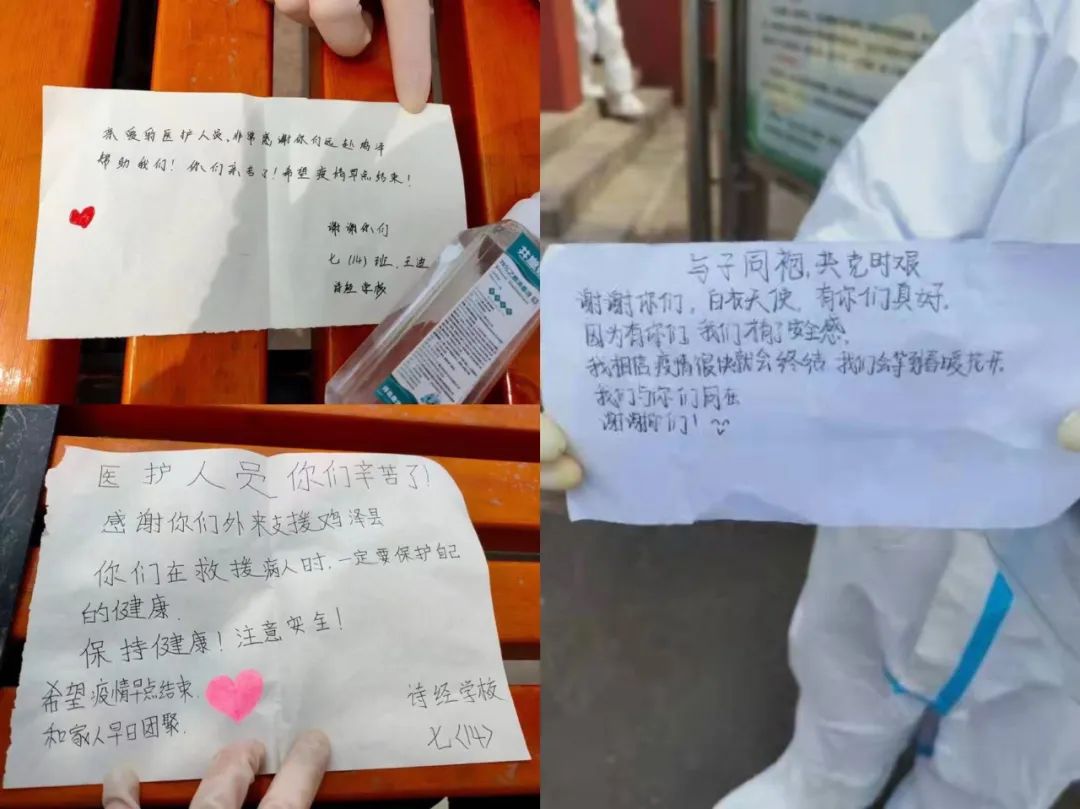 敬爱的医护人员、非常感谢你们远赴鸡泽
帮助我们！你们辛苦了！希望疫情早点结束！
谢谢你们
七（14）班．王迪
诗经学校
医护人员 你们辛苦了！
感谢你们外来支援鸡泽县
你们在救援病人时．一定要保护自己
的健康．
保持健康！注意安全！
希望疫情早点结束．
和家人早日团聚．
诗经学校
七〈14〉
与子同袍，共克时艰
谢谢你们，白衣天使，有你们真好．
因为有你们 我们才有了安全感．
我相信疫情很快就会终结 我们会等到春暖花开．
我们与你们同在
谢谢你们！